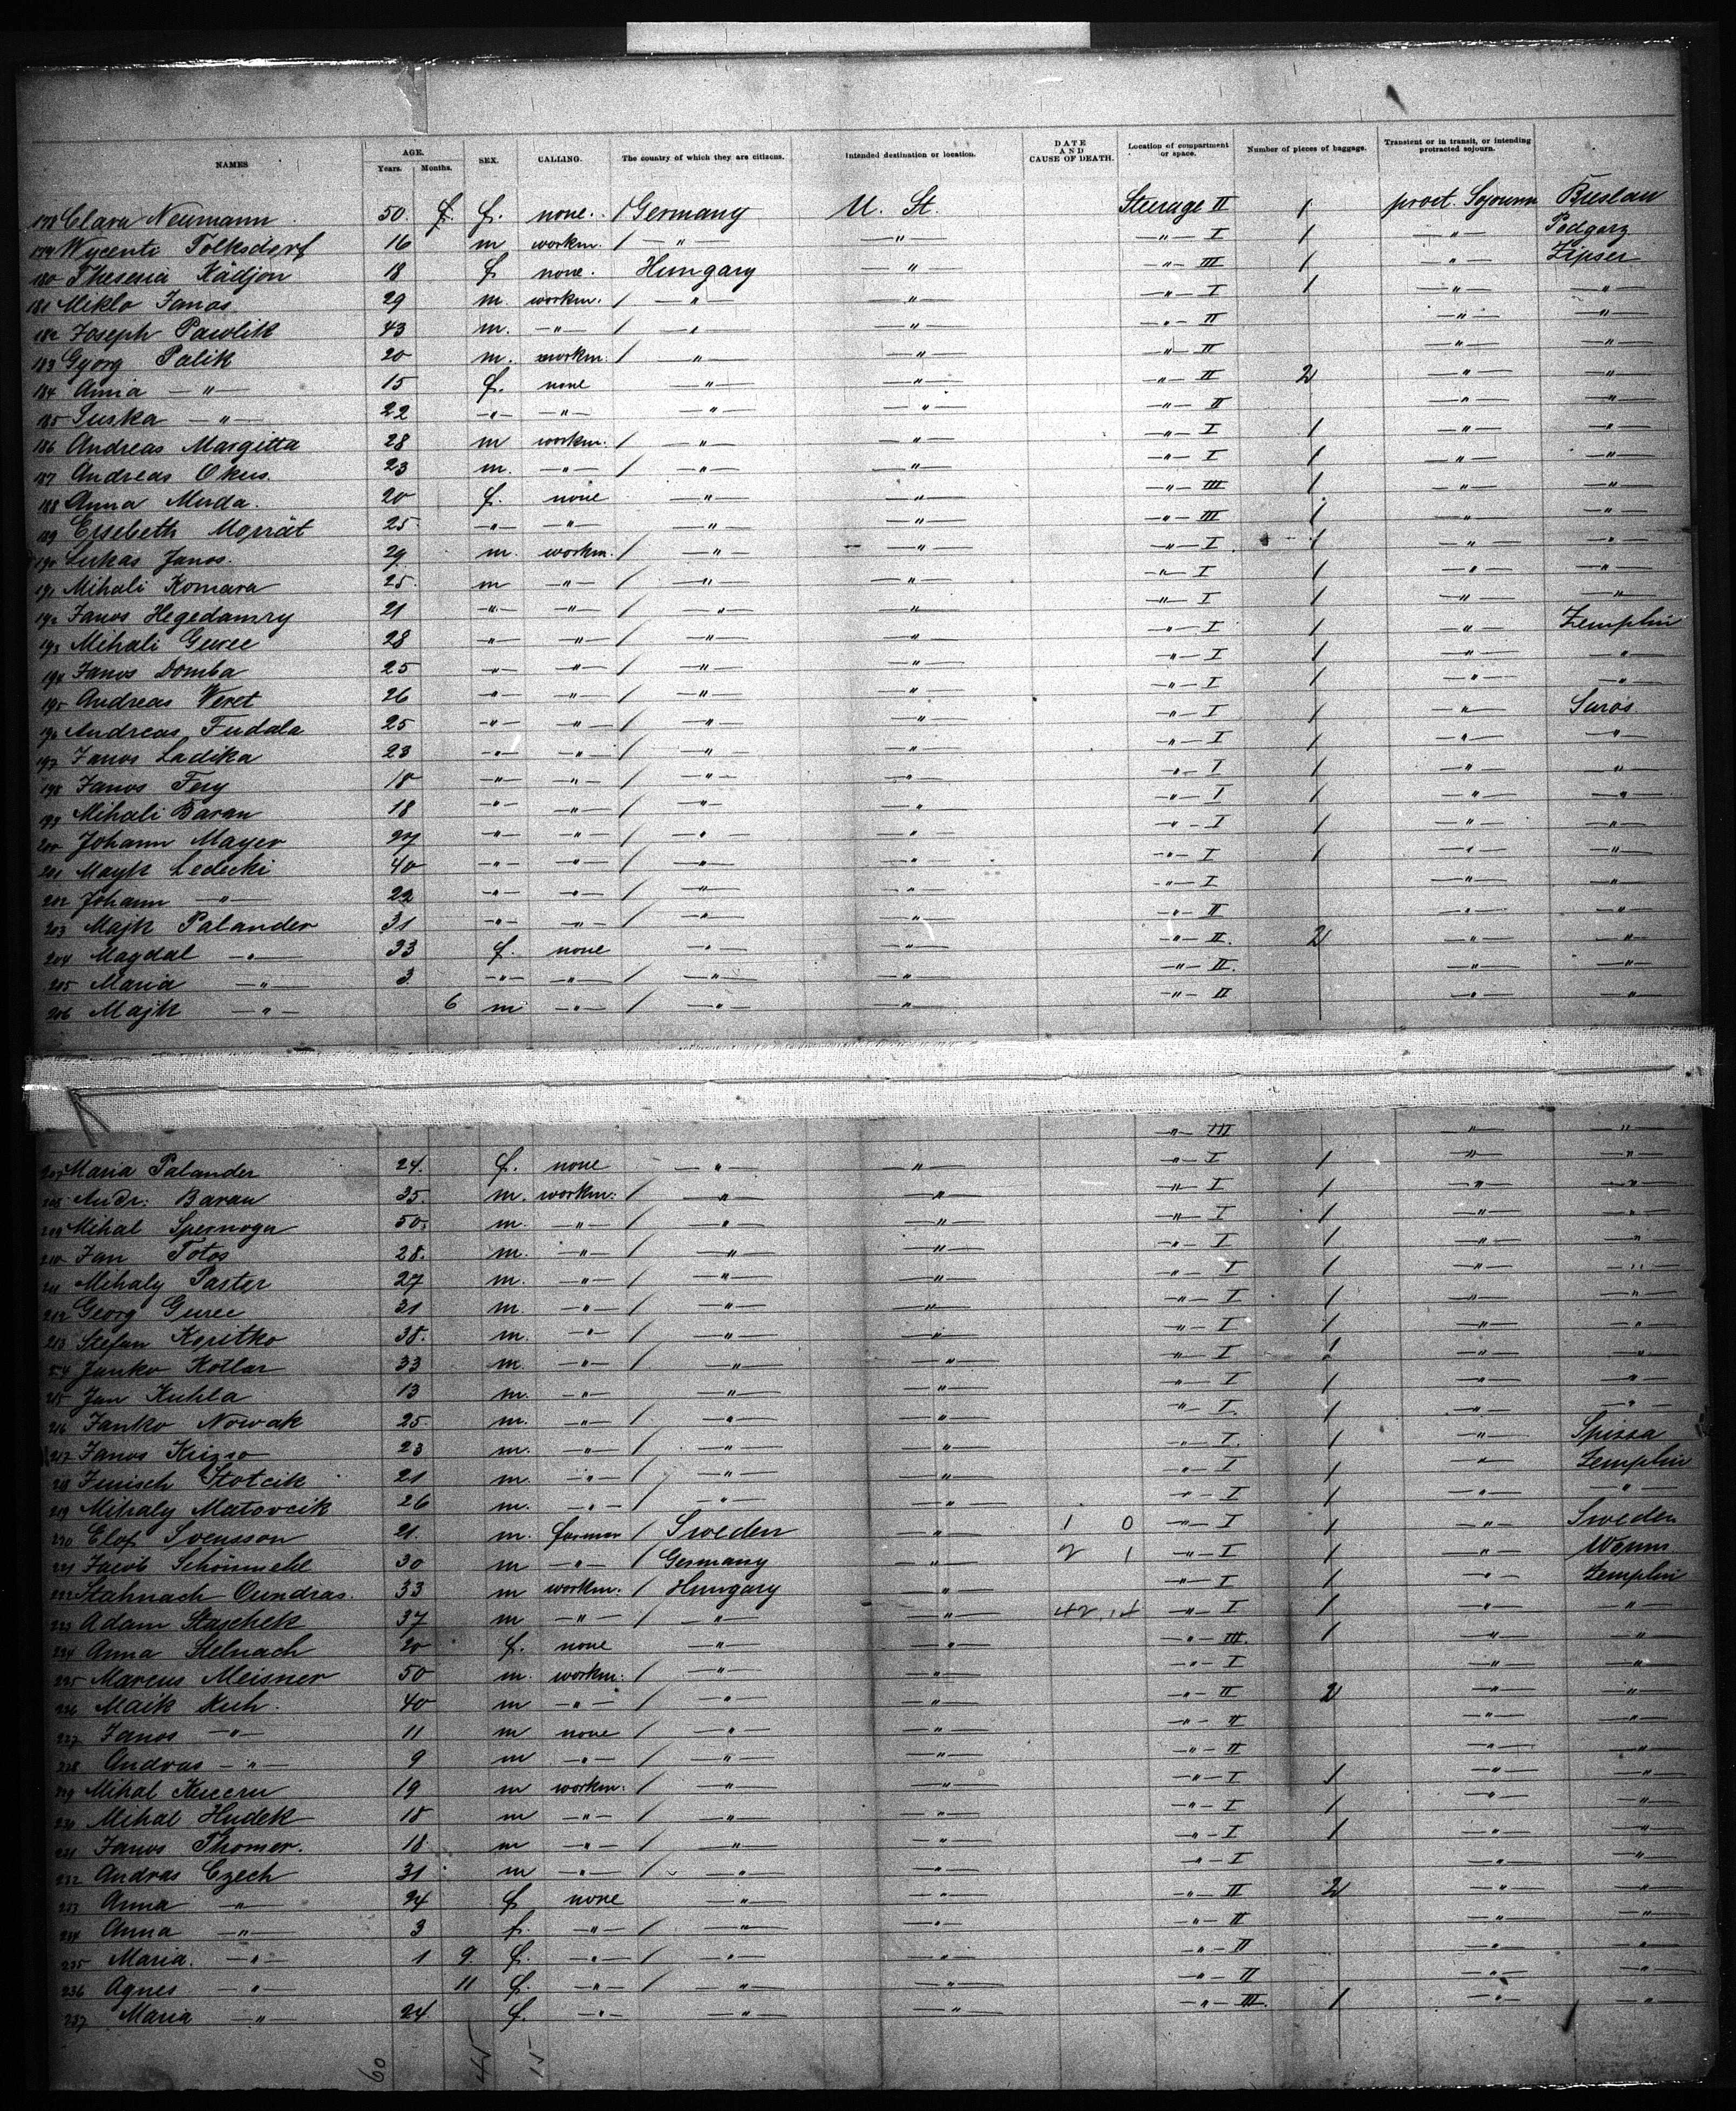 NAMES AGE. Years. Months. SEX. CALLING. The country of which they are citizens. Intended destination or location. DATE AND CAUSE OF DEATH. Location of compartment or space. Number of pieces of baggage. Transient or in transit, or intending protracted sojourn.
178 Clara Neumann 50. f. f. none. / Germany U. St. Steerage II 1 proct. Sojourn Breslau
179 Wycenti Tolksdorf 16 m workm. / —"— —"— —"— I 1 —"— Podgorz
180 Theresia Kädjon 18 f. none. Hungary —"— —"— III 1 —"— Zipser
181 Miklo Janos 29 m. workm. / —"— —"— —"— I 1 —"— —"—
182 Joseph Pawlik 43 m. —"— / —"— —"— —"— II —"— —"—
183 Gyorg Palik 20 m. workm. / —"— —"— —"— II —"— —"—
184 Anna —"— 15 f. none —"— —"— —"— II 2 —"— —"—
185 Suska —"— 22 —"— —"— —"— —"— —"— II —"— —"—
186 Andreas Margitta 28 m workm. / —"— —"— —"— I 1 —"— —"—
187 Andreas Okus. 23 m. —"— / —"— —"— —"— I 1 —"— —"—
188 Anna Muda. 20 f. none —"— —"— —"— III 1 —"— —"—
189 Erssebeth 25 —"— —"— —"— —"— —"— III 1 —"— —"—
190 Lukas Janos. 29 m. workm. / —"— —"— —"— I 1 —"— —"—
191 Mihali Komara 25. m —"— / —"— —"— —"— I 1 —"— —"—
192 Janos 21 —"— —"— / —"— —"— —"— I 1 —"— —"—
193 Mihali Gurec 28 —"— —"— / —"— —"— —"— I 1 —"— Zemplin
194 Janos Domba 25 —"— —"— / —"— —"— —"— I 1 —"— —"—
195 Andreas Veret 26 —"— —"— / —"— —"— —"— I 1 —"— —"—
196 Andreas Fudala 25 —"— —"— / —"— —"— —"— I 1 —"— Saros
197 Janos Ladika 23 —"— —"— / —"— —"— —"— I 1 —"— —"—
198 Janos 18 —"— —"— / —"— —"— —"— I 1 —"— —"—
199 Mihali Baran 18 —"— —"— / —"— —"— —"— I 1 —"— —"—
200 Johann Mayer —"— —"— / —"— —"— —"— I 1 —"— —"—
201 Mayk Ledecki 40 —"— —"— / —"— —"— —"— I 1 —"— —"—
202 Johann —"— 22 —"— —"— / —"— —"— —"— I —"— —"—
203 Majk Palander 31 —"— —"— / —"— —"— —"— II —"— —"—
204 Magdal —"— 33 f. none —"— —"— —"— II. 2 —"— —"—
205 Maria —"— 3. —"— —"— / —"— —"— —"— II. —"— —"—
206 Majk —"— 6 m —"— / —"— —"— —"— II —"— —"—
207 Maria Palander 24. f. none —"— —"— —"— III —"— —"—
208 Andr. Baran 35. m. workm. / —"— —"— —"— I 1 —"— —"—
209 Mihal Spernoga 50. m. —"— / —"— —"— —"— I 1 —"— —"—
210 Jan Totos 28. m. —"— / —"— —"— —"— I 1 —"— —"—
211 Mihaly Paster 27 m. —"— / —"— —"— —"— I 1 —"— —"—
212 Georg Gurec 31 m. —"— / —"— —"— —"— I 1 —"— —"—
213 Stefan Koritko 38. m. —"— / —"— —"— —"— I 1 —"— —"—
214 Janko Kotlar 33 m. —"— / —"— —"— —"— I 1 —"— —"—
215 Jan Kuhla 13 m. —"— —"— —"— —"— I 1 —"— —"—
216 Janko Nowak 25 m. —"— / —"— —"— —"— I 1 —"— —"—
217 Janos Krizso 23 m. —"— / —"— —"— —"— I 1 —"— Spissa
218 Stotcik 21 m. —"— / —"— —"— —"— I 1 —"— Zemplin
219 Mihaly Matovcik 26 m. —"— / —"— —"— —"— I 1 —"— —"—
220 Elof Svensson 21. m. farmer / Sweden " 1 0 —"— I 1 —"— Sweden
221 Jacob Schönmehl 30 m —"— / Germany 2 1 —"— I 1 —"— Worms
222 Stahnach Oundras. 33 m workm. / Hungary " —"— I 1 —"— Zemplin
223 Adam Staschek 37 m —"— / —"— —"— 42.14 —"— I 1 —"— —"—
224 Anna Stelnach 20 f. none —"— —"— —"— III. 1 —"— —"—
225 Marcus Meisner 50 m. workm. / —"— —"— —"— I —"— —"—
226 Maik Kuh. 40 m —"— / —"— —"— —"— II 2 —"— —"—
227 Janos —"— 11 m none / —"— —"— —"— II —"— —"—
228 Andras —"— 9 m —"— / —"— —"— —"— II —"— —"—
229 Mihal 19 m workm. / —"— —"— —"— I 1 —"— —"—
230 Mihal Hudek 18 m —"— / —"— —"— —"— I 1 —"— —"—
231 Janos Thomer. 18 m —"— / —"— —"— —"— I 1 —"— —"—
232 Andras Czech 31 m —"— / —"— —"— —"— I —"— —"—
233 Anna —"— 24 f none —"— —"— —"— II 2 —"— —"—
234 Anna —"— 3 f. —"— / —"— —"— —"— II —"— —"—
235 Maria. —"— 1 9. f. —"— / —"— —"— —"— II —"— —"—
236 Agnes —"— 11 f. —"— / —"— —"— —"— II —"— —"—
237 Maria —"— 24. f. —"— —"— —"— —"— III. 1 —"— —"—
60 45 15